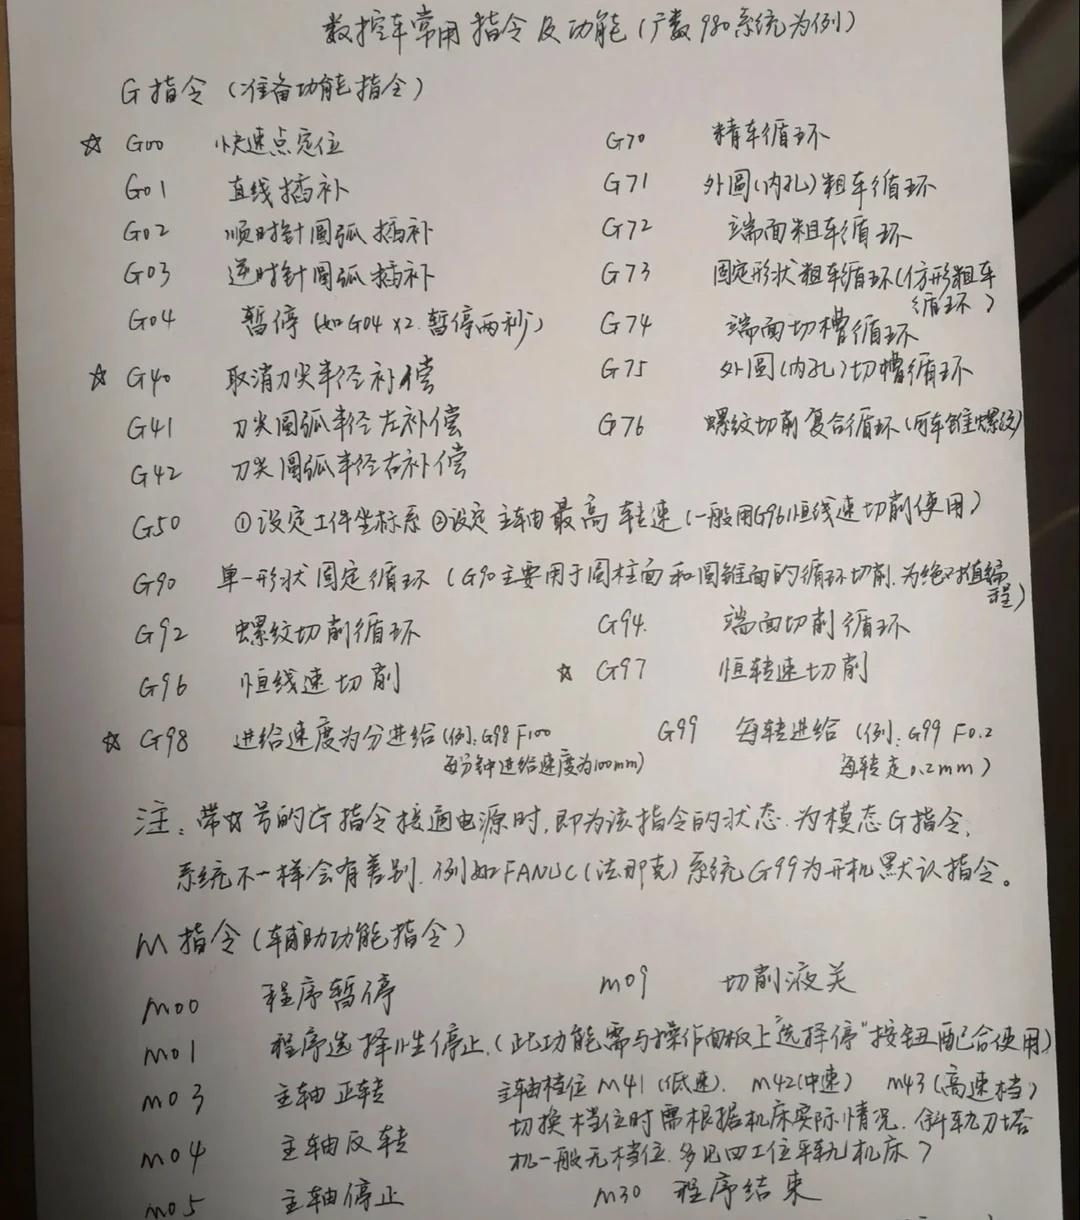 数控车常用指令及功能(广数980系统为例)
G指令(准备功能指令)
☆ G00 快速点定位 G70 精车循环
G01 直线插补 G71 外圆(内孔)粗车循环
G02 顺时针圆弧插补 G72 端面粗车循环
G03 逆时针圆弧插补 G73 固定形状粗车循环(仿形粗车
循环)
G04 暂停(如G04 X2.暂停两秒) G74 端面切槽循环
☆ G40 取消刀尖半径补偿 G75 外圆(内孔)切槽循环
G41 刀尖圆弧半径左补偿 G76 螺纹切削复合循环(可车锥螺纹)
G42 刀尖圆弧半径右补偿
G50 ①设定工件坐标系②设定主轴最高转速(一般用G96恒线速切削使用)
G90 单一形状固定循环(G90主要用于圆柱面和圆锥面的循环切削.为绝对值编
程)
G92 螺纹切削循环 G94. 端面切削循环
G96 恒线速切削 ☆ G97 恒转速切削
☆ G98 进给速度为分进给(例:G98 F100 G99 每转进给(例:G99 F0.2
每分钟进给速度为100mm) 每转走0.2mm)
注:带☆号的G指令接通电源时,即为该指令的状态.为模态G指令,
系统不一样会有差别.例如FANUC(法那克)系统G99为开机默认指令。
M指令(辅助功能指令)
M00 程序暂停 M09 切削液关
M01 程序选择性停止.(此功能需与操作面板上"选择停"按钮配合使用)
M03 主轴正转 主轴档位M41(低速). M42(中速) M43(高速档)
切换档位时需根据机床实际情况.斜轨刀塔
M04 主轴反转 机一般无档位.多见四工位平轨机床)
M05 主轴停止 M30 程序结束